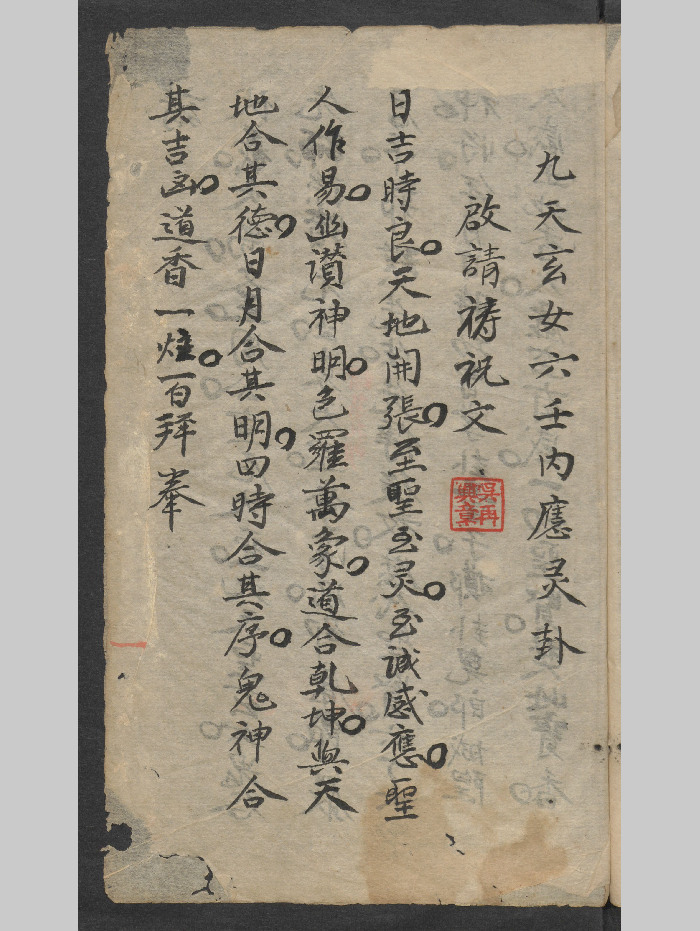 九天玄女六壬內應灵卦
啟請禱祝文
吳再興章
日吉時良。天地開張。至聖至灵。至誠感應。聖
人作易。幽讚神明。包羅萬象。道合乾坤。與天
地合其德。日月合其明。四時合其序。鬼神合
其吉凶。道香一炷。百拜奉